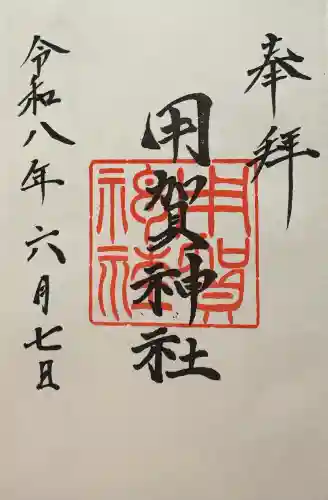 奉拝
用賀神社
用賀神社
令和八年六月七日